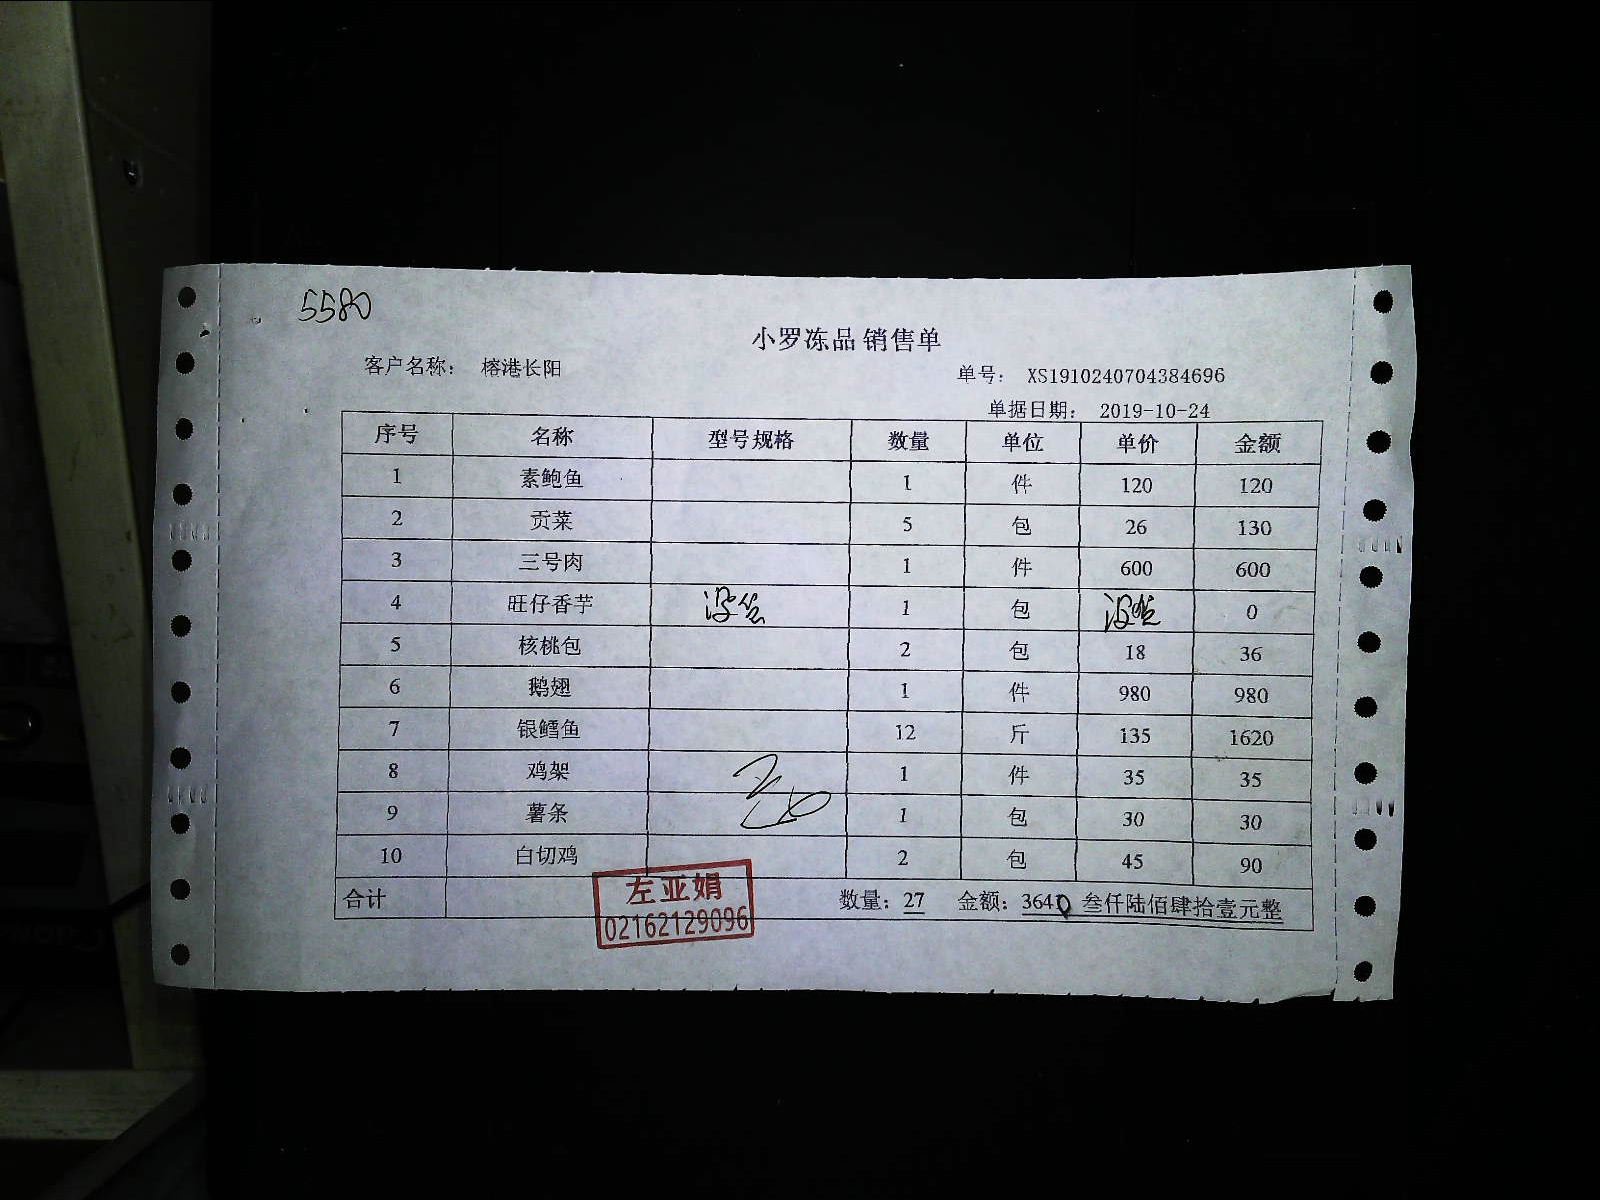 5580
小罗冻品 销售单
客户名称： 榕港长阳
单号： XS1910240704384696
单据日期： 2019-10-24
序号 名称 型号规格 数量 单位 单价 金额
1 素鲍鱼 1 件 120 120
2 贡菜 5 包 26 130
3 三号肉 1 件 600 600
4 旺仔香芋 1 包 0
5 核桃包 2 包 18 36
6 鹅翅 1 件 980 980
7 银鳕鱼 12 斤 135 1620
8 鸡架 1 件 35 35
9 薯条 1 包 30 30
10 白切鸡 2 包 45 90
合计 数量：27 金额：3640 叁仟陆佰肆拾壹元整
左亚娟
02162129096